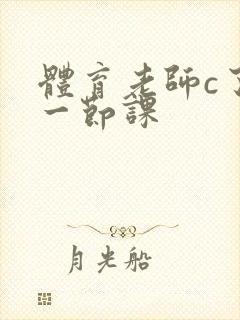 體育老師c了
一節課
月光船